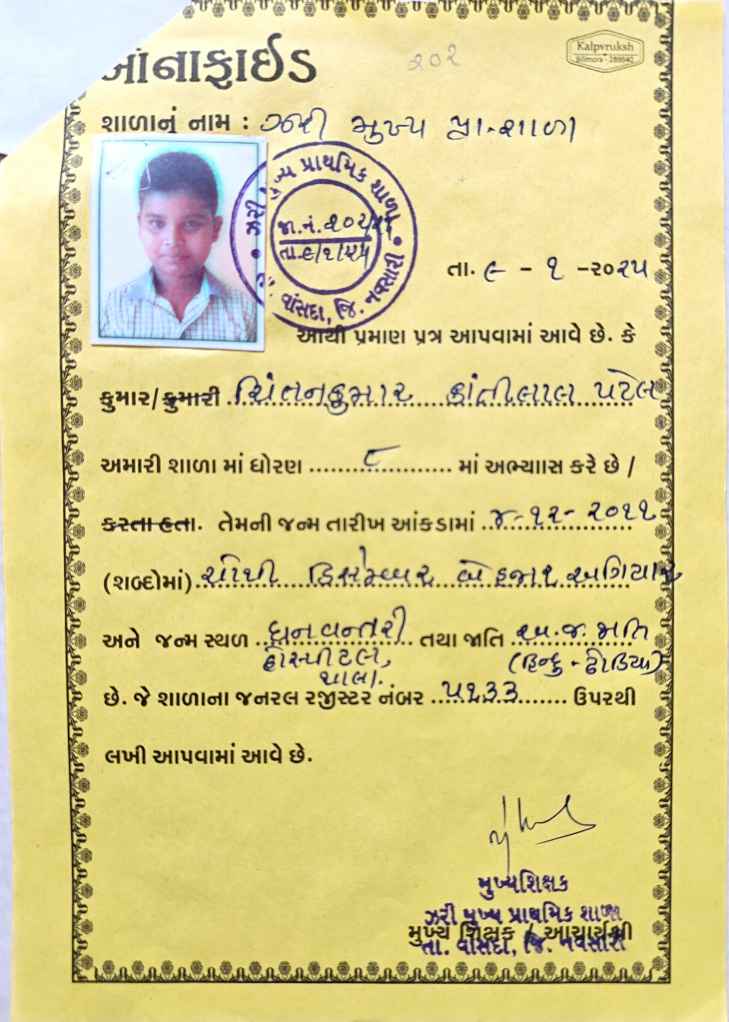 બોનાફાઈડ
૨૦૨
Kalpvruksh
Bilimora - 289640
શાળાનું નામ : ઝરી મુખ્ય પ્રા.શાળા
ઝરી મુખ્ય પ્રાથમિક શાળા
જા.નં.૨૦૨
તા.૯/૧/૨૫
વાંસદા, જિ. નવસારી
તા. ૯ - ૧ -૨૦૨૫
આથી પ્રમાણ પત્ર આપવામાં આવે છે. કે
કુમાર/કુમારી ચિંતનકુમાર કાંતીલાલ પટેલ
અમારી શાળા માં ધોરણ ૮ માં અભ્યાસ કરે છે /
કરતા હતા. તેમની જન્મ તારીખ આંકડામાં ૪-૧૨-૨૦૧૧
(શબ્દોમાં) ચોથી ડિસેમ્બર બે હજાર અગિયાર
અને જન્મ સ્થળ ધનવન્તરી તથા જાતિ અ.જ.જાતિ
હોસ્પીટલ, (હિન્દુ - ઢોડિયા)
ચાલા.
છે. જે શાળાના જનરલ રજીસ્ટર નંબર ૫૧૩૩ ઉપરથી
લખી આપવામાં આવે છે.
મુખ્યશિક્ષક
ઝરી મુખ્ય પ્રાથમિક શાળા
મુખ્ય શિક્ષક / આચાર્યશ્રી
તા. વાંસદા, જિ. નવસારી